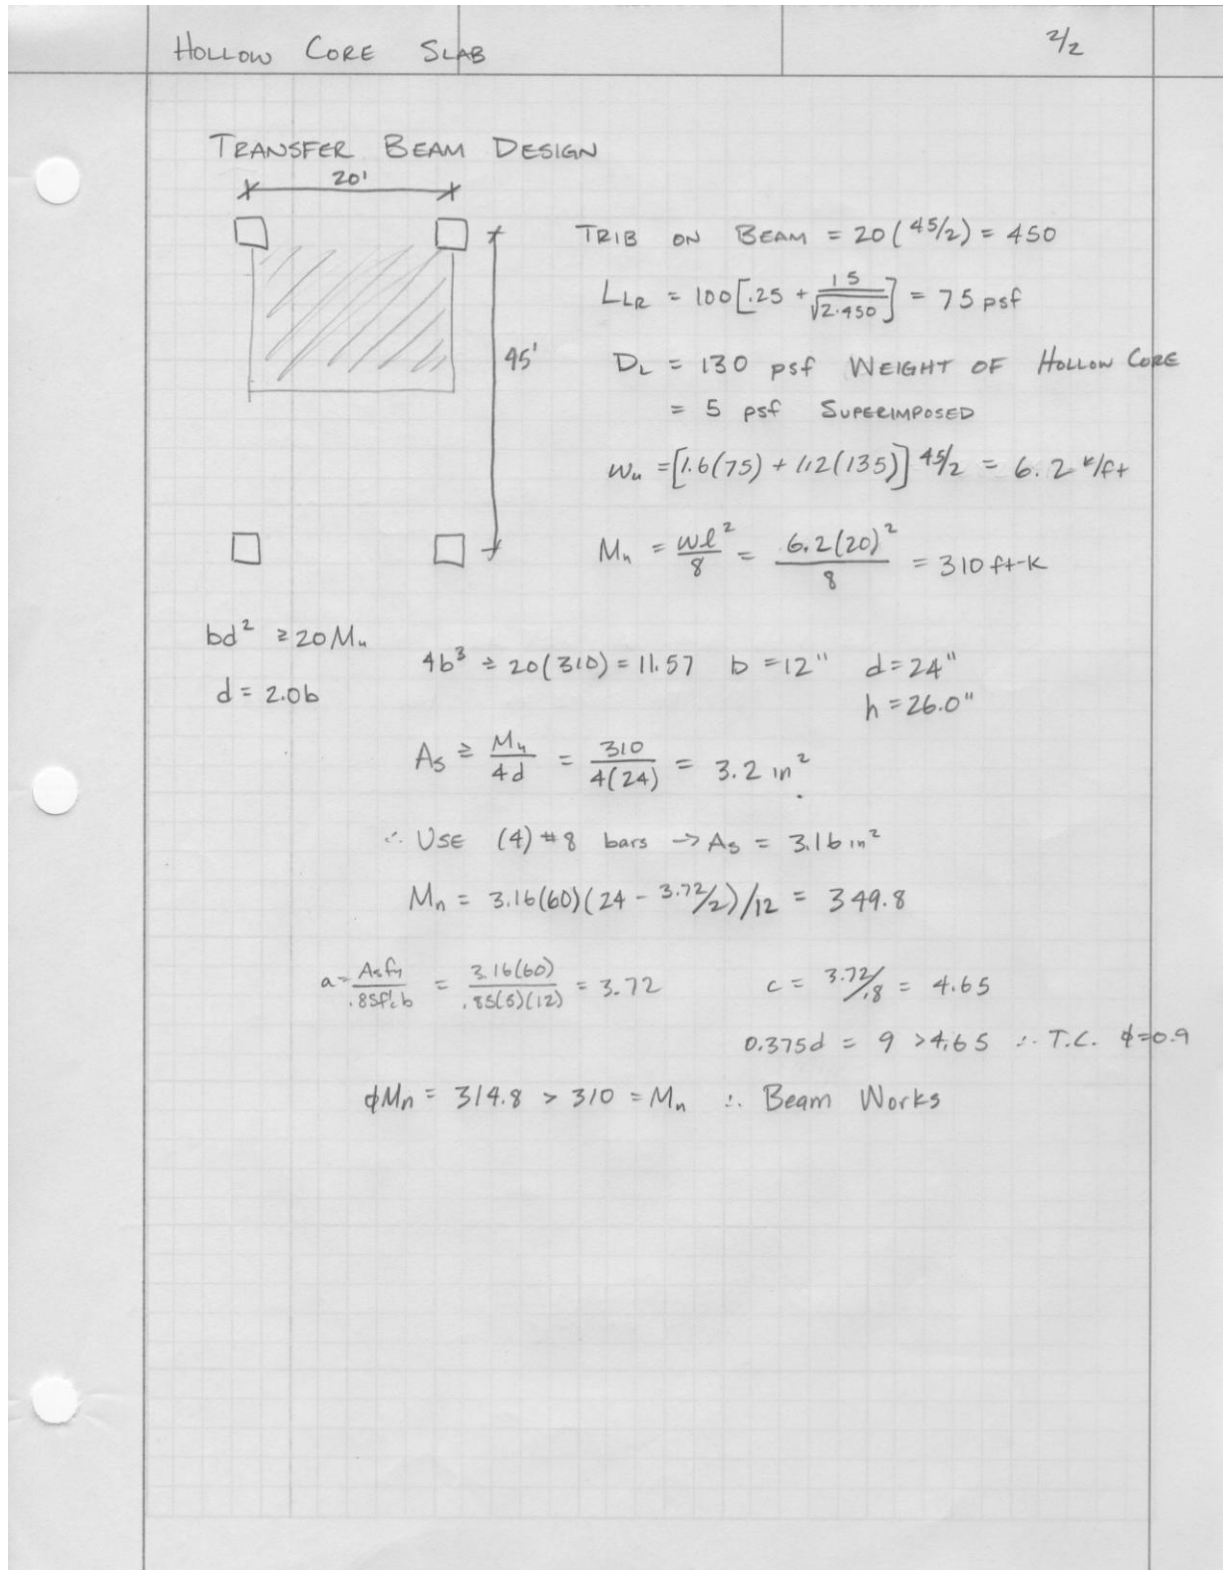 HOLLOW CORE SLAB 2/2
TRANSFER BEAM DESIGN
20'
TRIB ON BEAM = 20(45/2) = 450
L_LR = 100[.25 + 15/√2·450] = 75 psf
45'
D_L = 130 psf WEIGHT OF HOLLOW CORE
= 5 psf SUPERIMPOSED
w_u = [1.6(75) + 1.2(135)] 45/2 = 6.2 k/ft
M_u = wl²/8 = 6.2(20)²/8 = 310 ft-k
bd² ≥ 20M_u
4b³ ≥ 20(310) = 11.57 b = 12" d = 24"
d = 2.0b
h = 26.0"
A_s ≥ M_u/4d = 310/4(24) = 3.2 in²
∴ USE (4) #8 bars → A_s = 3.16 in²
M_n = 3.16(60)(24 - 3.72/2)/12 = 349.8
a = A_s f_y/.85f'_c b = 3.16(60)/.85(5)(12) = 3.72 c = 3.72/.8 = 4.65
0.375d = 9 > 4.65 ∴ T.C. ϕ=0.9
ϕM_n = 314.8 > 310 = M_u ∴ Beam Works